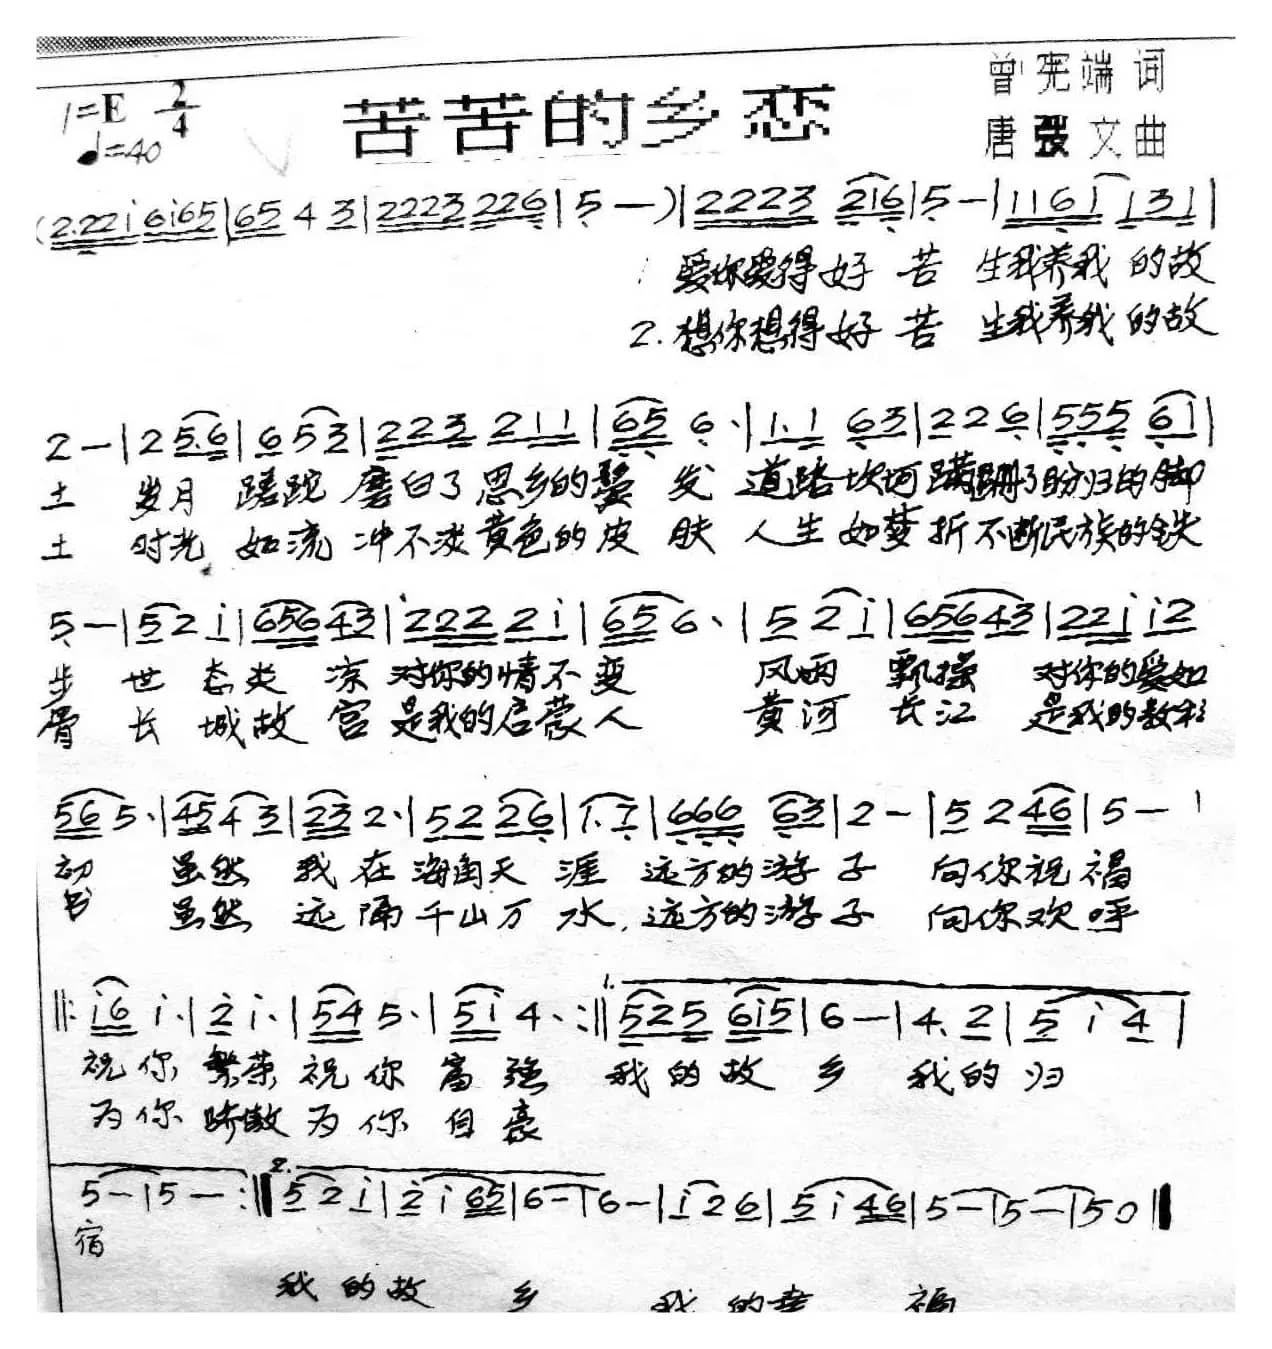 1=E 2/4
♩=40
苦苦的乡恋
曾宪端 词
唐 文曲
(2.22i 6i65|65 4 3|2223 226|5 —)|2223 216|5 —|1161 131|
1 爱你爱得好 苦 生我养我 的故
2. 想你想得好 苦 生我养我 的故
2 —|2 5.6|6 53|223 211|65 6·|1.1 63|226|555 61|
土 岁月 蹉跎 磨白了思乡的鬓 发 道路坎坷蹒跚了盼归的脚
土 时光 如流 冲不淡黄色的皮 肤 人生如梦折不断民族的铁
5 —|52i|65643|222 2i|65 6·|52i|65643|22i i2
步 世态炎 凉 对你的情不变 风雨 飘摇 对你的爱如
骨 长城故 宫 是我的启蒙人 黄河 长江 是我的教科
56 5·|4543|23 2·|52 26|1.7|666 63|2 —|5 2 46|5 —
初 虽然 我在海角天 涯 远方的游子 向你祝福
书 虽然 远隔千山万 水,远方的游子 向你欢呼
||:i6 i·|2 i·|54 5·|5i 4·:||1. 525 6i5|6 —|4. 2|5 i 4|
祝你 繁荣 祝你 富强 我的故 乡 我的归
为你 骄傲 为你 自豪
5 —|5 — :||2. 52i|2i65|6 —|6 —|i26|5i46|5 —|5 —|50||
宿
我的故 乡 我的幸 福